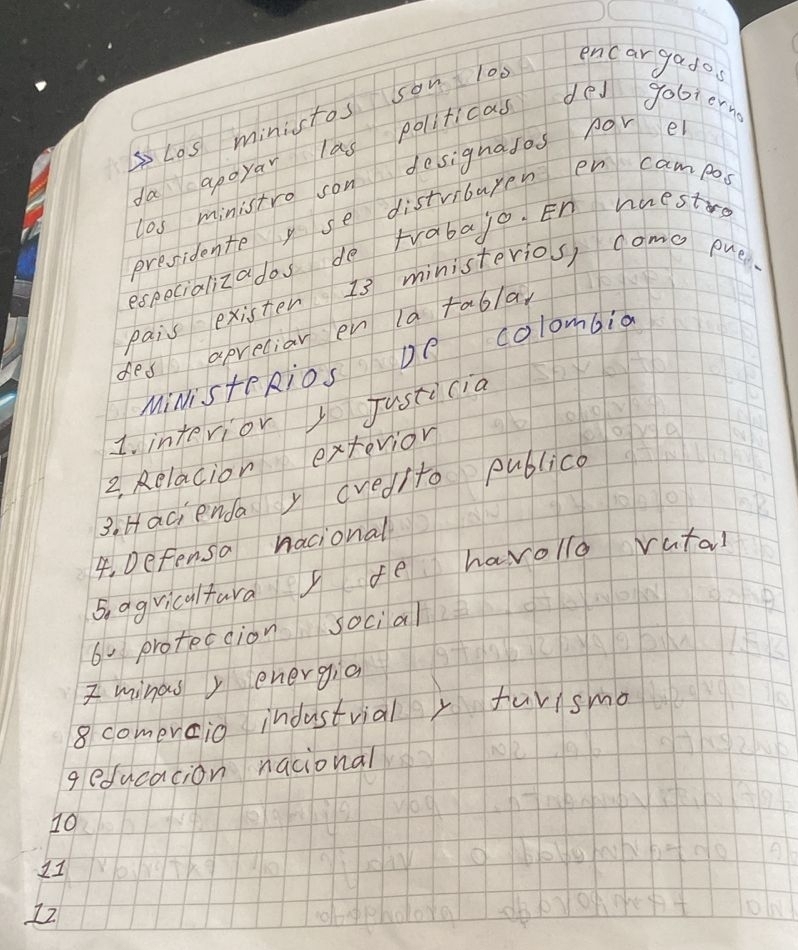 >> Los ministos son los encargados
da apoyar las politicas del gobierno
los ministro son designados por el
presidente y se distribuyen en campos
especializados de trabajo. En nuestro
pais existen 13 ministerios, como pue-
des apreciar en la tabla,
MiNiSteRios De colombia
1. interior y Justicia
2. Relacion exterior
3. Hacienda y credito publico
4. Defensa nacional
5. agricultura y de harollo rutal
6. proteccion social
7 minas y energia
8 comercio industrial y turismo
9 educacion nacional
10
11
12